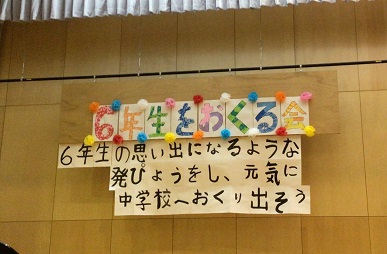 6年生をおくる会
6年生の思い出になるような
発ぴょうをし、元気に
中学校へおくり出そう